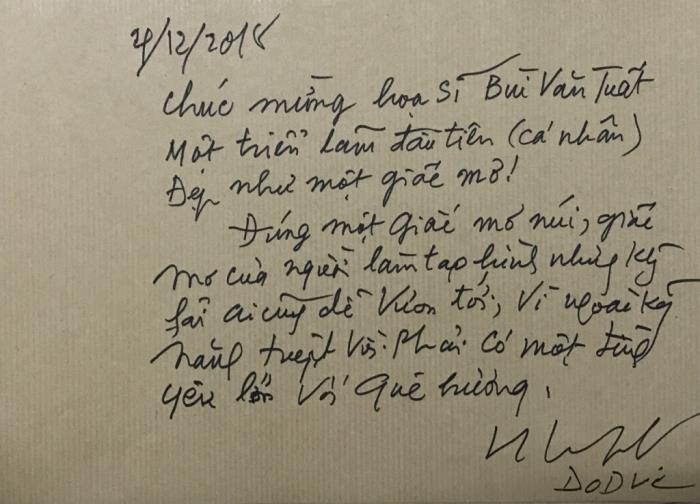 4/12/2018
Chúc mừng họa sĩ Bùi Văn Tuất
Một triển lãm đầu tiên (cá nhân)
Đẹp như một giấc mơ!
Đúng một giấc mơ núi, giấc
mơ của người làm tạo hình nhưng
ai cũng dễ vươn tới, vì ngoài kỹ
năng tuyệt vời phải có một
yêu lớn với quê hương.